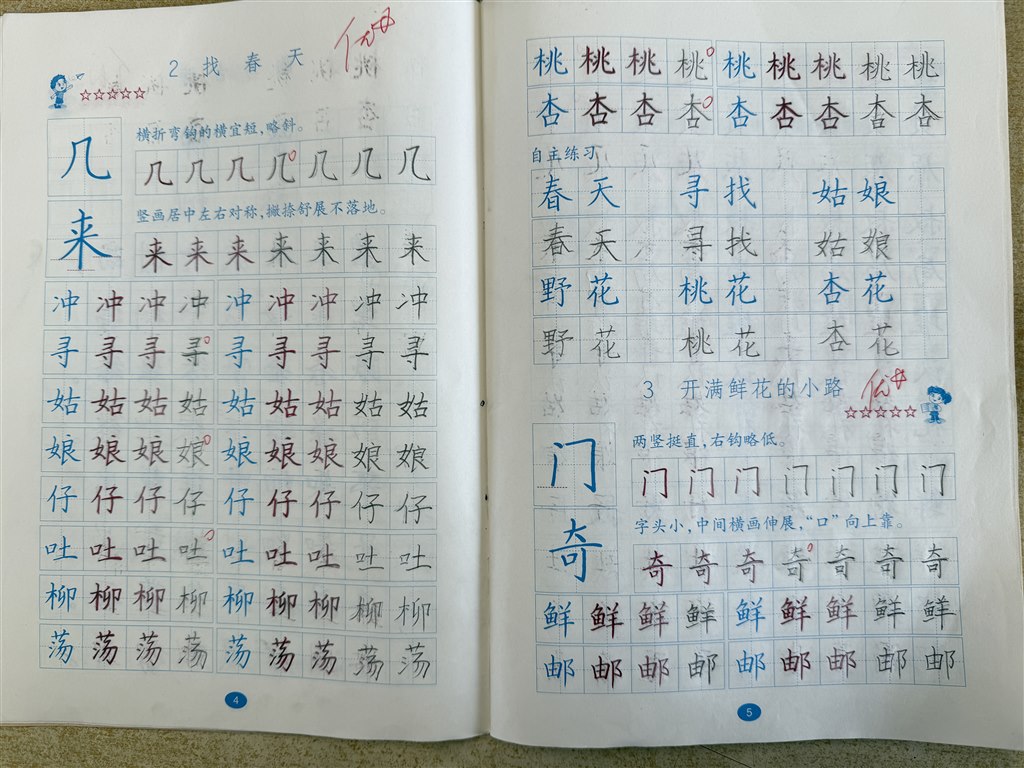 2 找 春 天
优
☆☆☆☆☆
横折弯钩的横宜短,略斜。
几 几 几 几 几 几 几 几
竖画居中左右对称,撇捺舒展不落地。
来 来 来 来 来 来 来 来
冲 冲 冲 冲 冲 冲 冲 冲 冲
寻 寻 寻 寻 寻 寻 寻 寻 寻
姑 姑 姑 姑 姑 姑 姑 姑 姑
娘 娘 娘 娘 娘 娘 娘 娘 娘
仔 仔 仔 仔 仔 仔 仔 仔 仔
吐 吐 吐 吐 吐 吐 吐 吐 吐
柳 柳 柳 柳 柳 柳 柳 柳 柳
荡 荡 荡 荡 荡 荡 荡 荡 荡
4
桃 桃 桃 桃 桃 桃 桃 桃 桃
杏 杏 杏 杏 杏 杏 杏 杏 杏
自主练习
春 天 寻 找 姑 娘
春 天 寻 找 姑 娘
野 花 桃 花 杏 花
野 花 桃 花 杏 花
3 开满鲜花的小路
优
☆☆☆☆☆
两竖挺直,右钩略低。
门 门 门 门 门 门 门 门
字头小,中间横画伸展,“口”向上靠。
奇 奇 奇 奇 奇 奇 奇 奇
鲜 鲜 鲜 鲜 鲜 鲜 鲜 鲜 鲜
邮 邮 邮 邮 邮 邮 邮 邮 邮
5